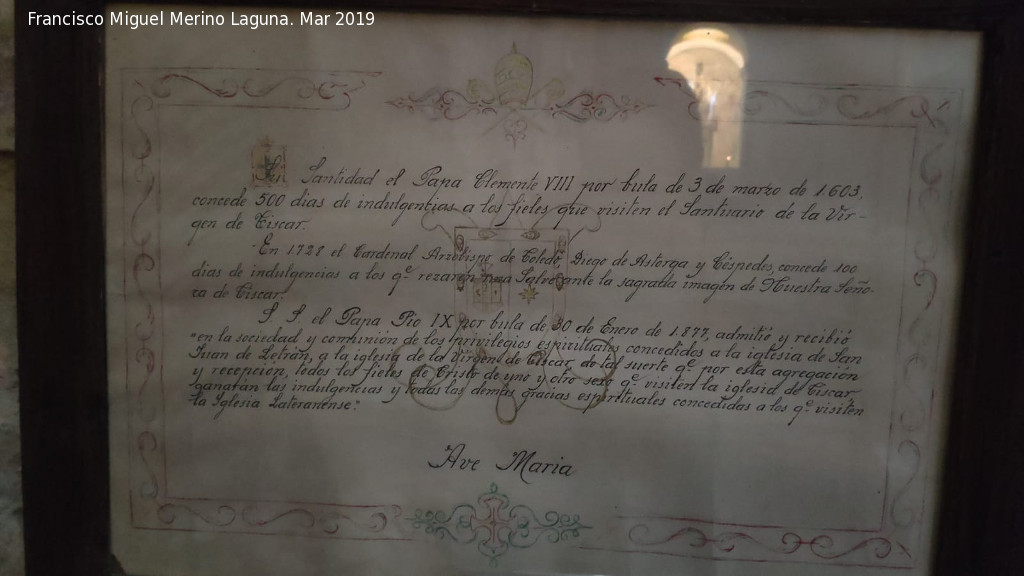 Francisco Miguel Merino Laguna. Mar 2019
Su Santidad el Papa Clemente VIII por bula de 3 de marzo de 1.603,
concede 500 dias de indulgencias a los fieles que visiten el Santuario de la Vir-
gen de Tiscar.
En 1728 el Cardenal Arzobispo de Toledo Diego de Astorga y Céspedes, concede 100
dias de indulgencias a los qe. rezaren una Salve ante la sagrada imagen de Nuestra Seño-
ra de Tiscar.
S S el Papa Pio IX por bula de 30 de Enero de 1877, admitió y recibió
"en la sociedad y comunión de los privilegios espirituales concedidos a la iglesia de San
Juan de Letrán, a la iglesia de la Virgen de Tiscar, de tal suerte qe. por esta agregación
y recepción, todos los fieles de Cristo de uno y otro sexo qe. visiten la iglesia de Tiscar
ganarán las indulgencias y todas las demás gracias espirituales concedidas a los qe. visiten
la Iglesia Lateranense".
Ave Maria